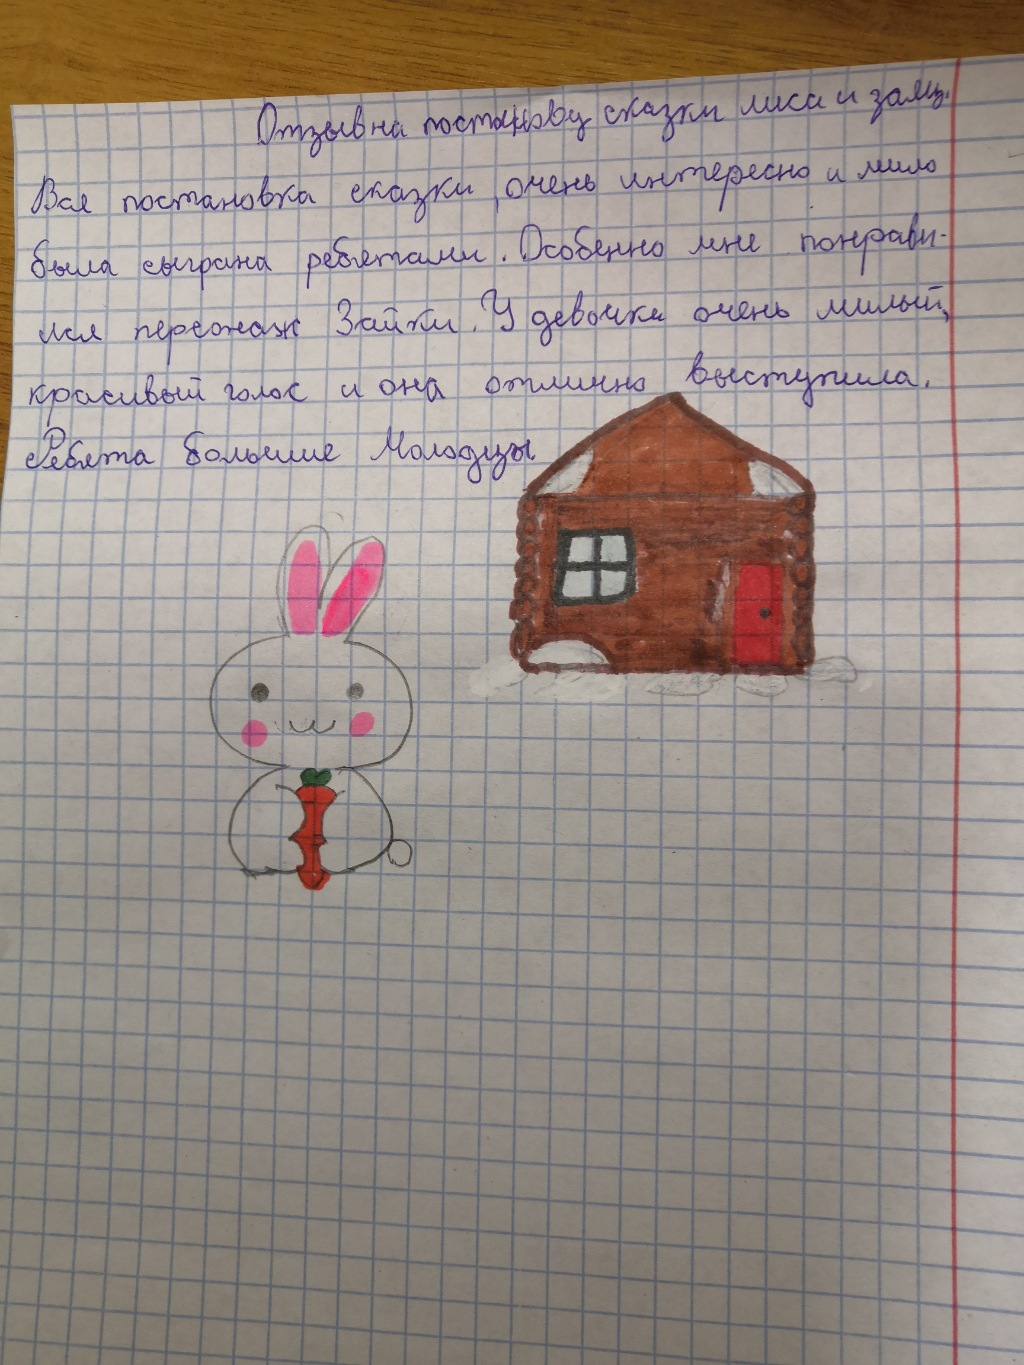 Отзыв на постановку сказки лиса и заяц.
Вся постановка сказки, очень интересно и мило
была сыграна ребятами. Особенно мне понрави-
лся персонаж Зайки. У девочки очень милый,
красивый голос и она отлично выступила.
Ребята большие Молодцы